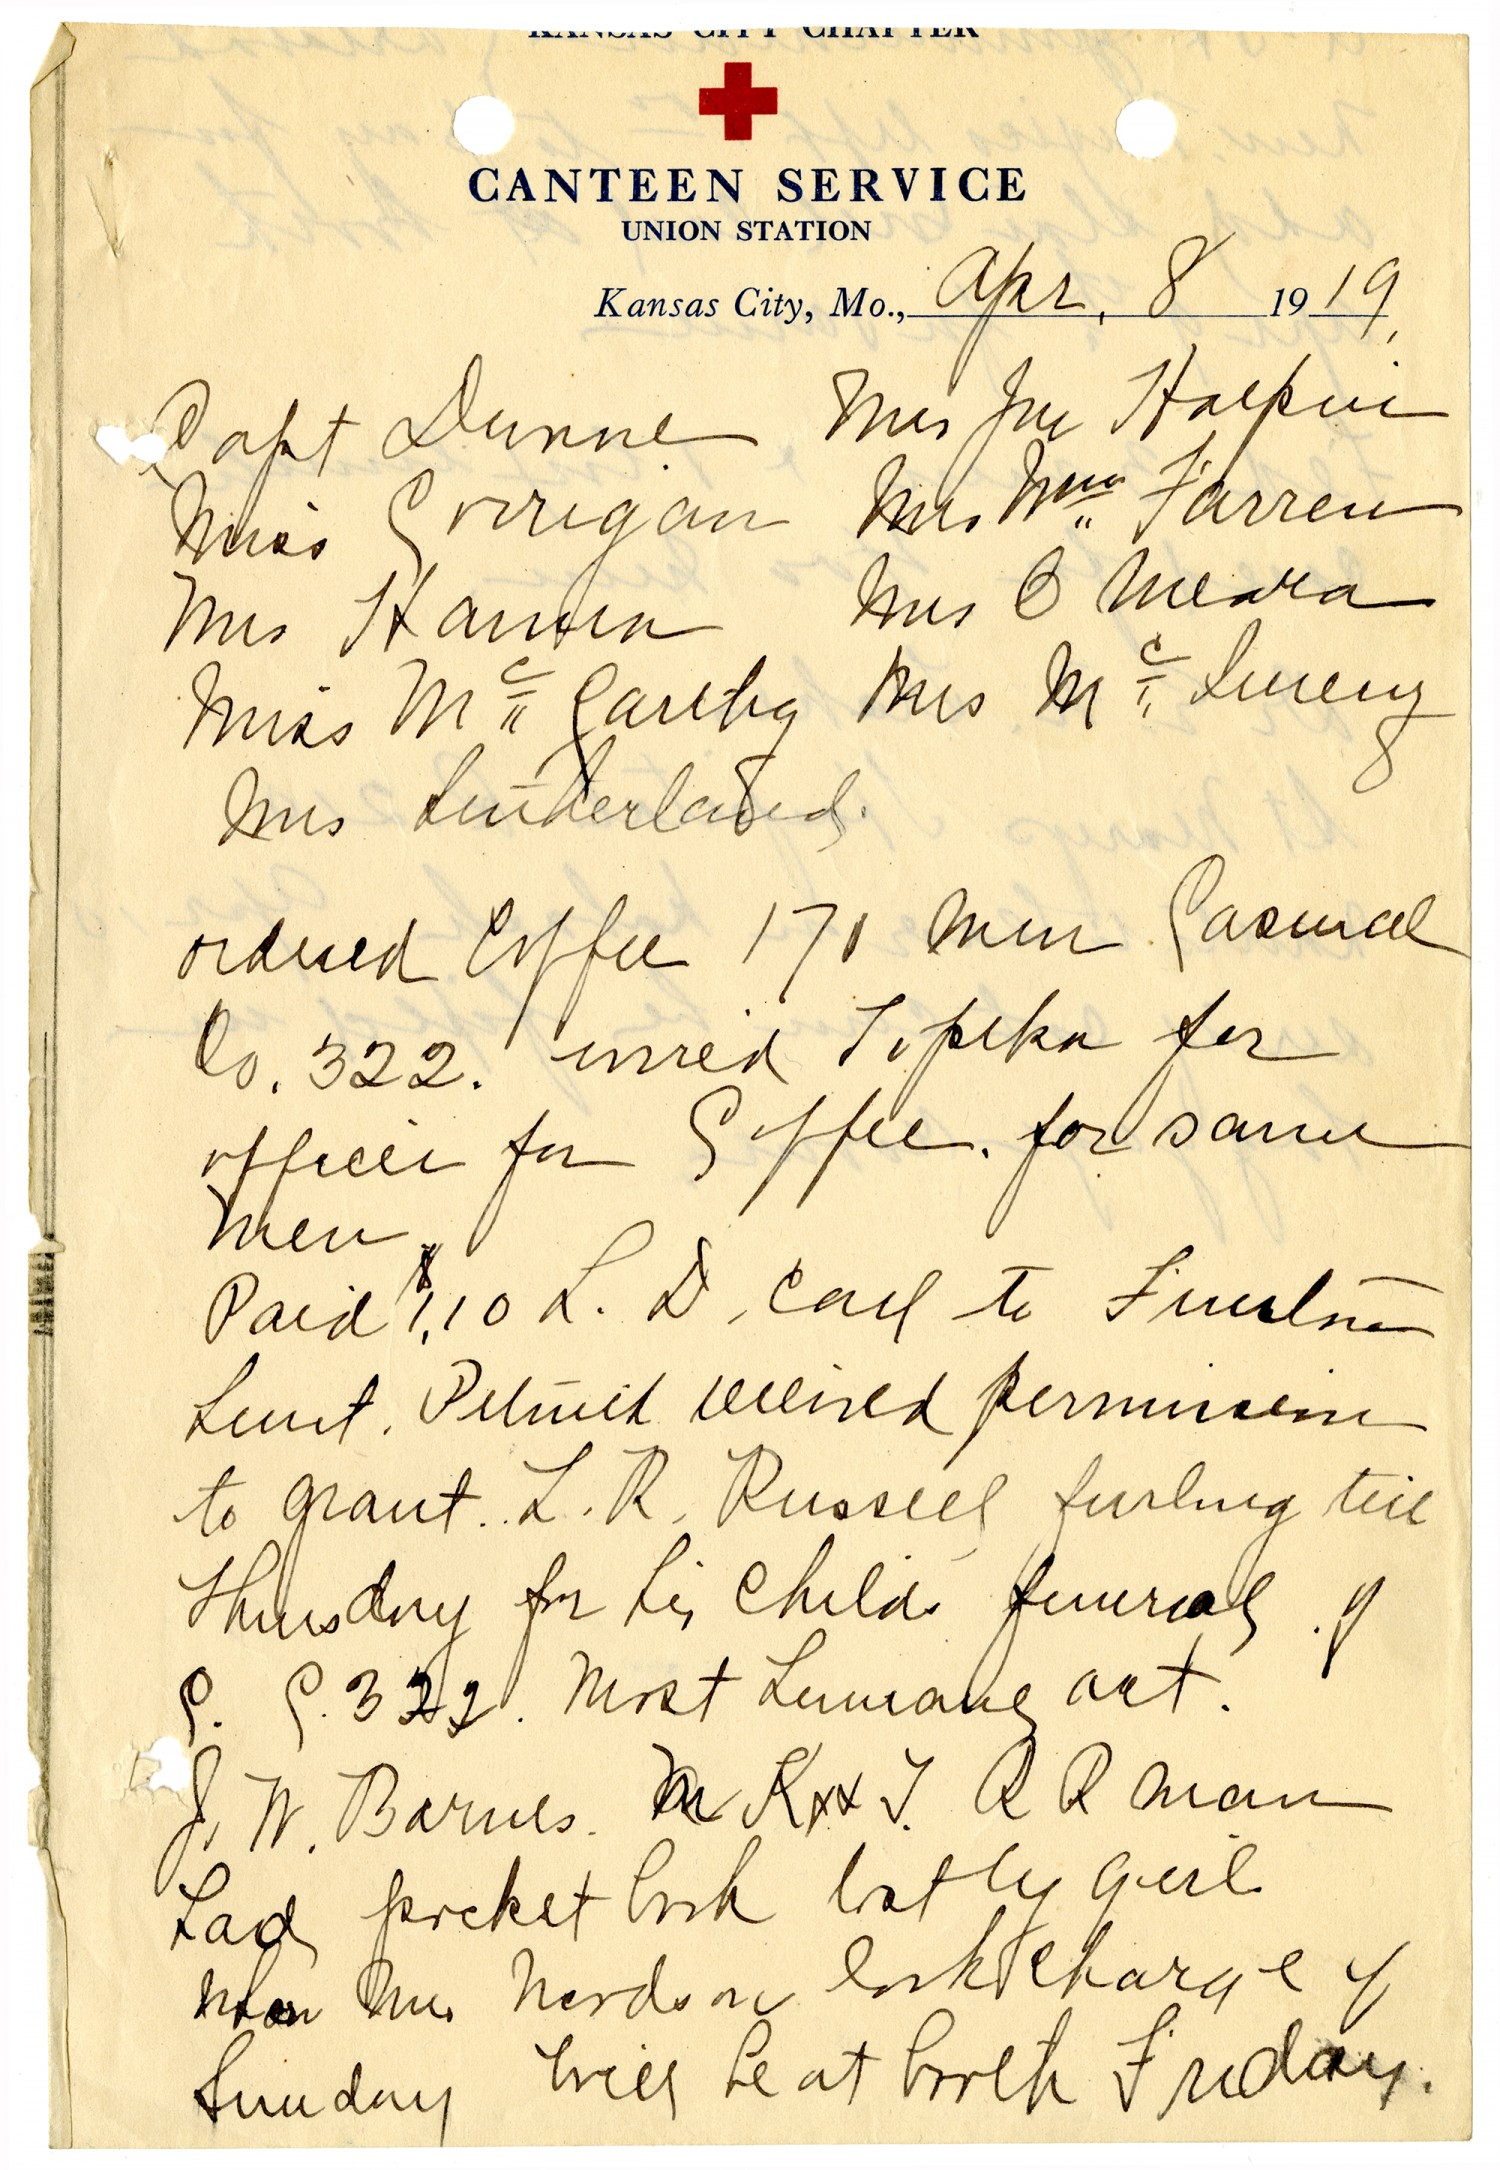 KANSAS CITY CHAPTER
CANTEEN SERVICE
UNION STATION
Kansas City, Mo., Apr. 8 1919
Capt Dunne Mrs Jno Halpin
Miss Corrigan Mrs Wm Farren
Mrs Hannon Mrs O Meara
Miss Mc Carthy Mrs. Mc
Mrs Sutherland.
ordered Coffee 170 men Casual
Co. 322. wired Topeka for
officer for Coffee. for same
men.
Paid $1.10 L. D. call to Funston
Lieut. received permission
to grant. L. R. Russell furlong till
Thursday for his Childs funeral. of
C. C. 322. Most humane act.
J. W. Barnes. M K & T. R R man
had pocket book lost by girl
when Mrs took charge of
Sunday will be at booth Friday.